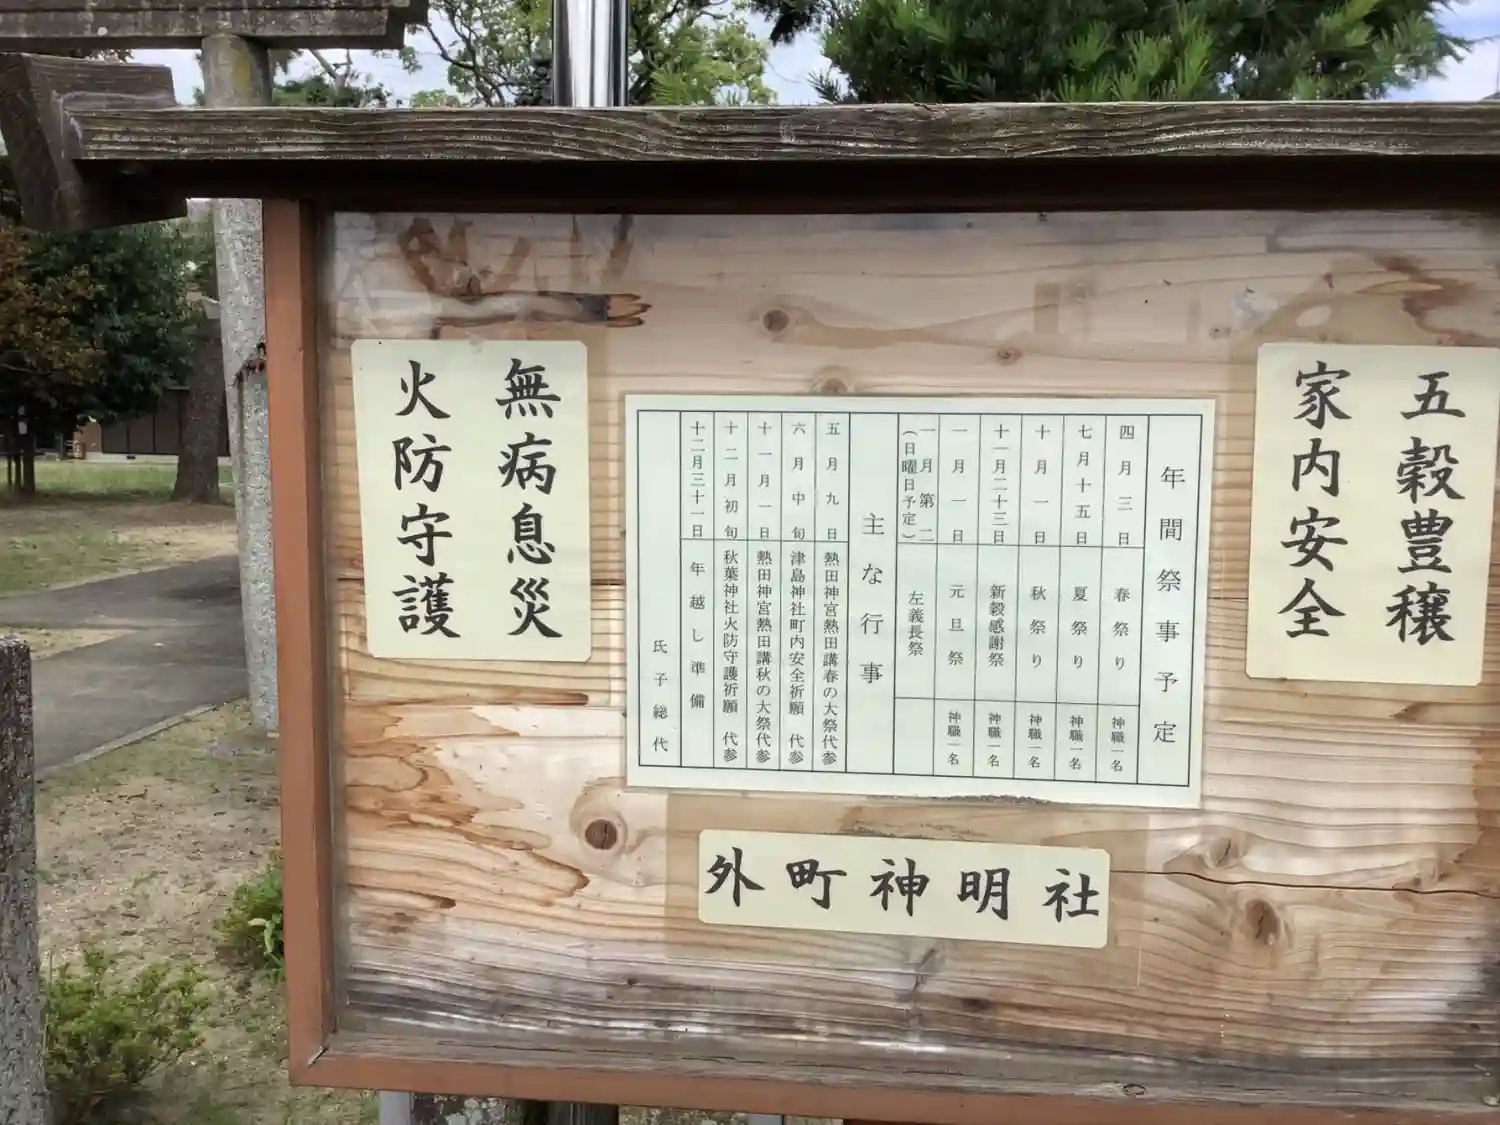 五穀豊穣
家内安全
年間祭事予定
四月三日 春祭り 神職一名
七月十五日 夏祭り 神職一名
十月一日 秋祭り 神職一名
十一月二十三日 新穀感謝祭 神職一名
一月一日 元旦祭 神職一名
一月第二
(日曜日予定) 左義長祭
主な行事
五月九日 熱田神宮熱田講春の大祭代参
六月中旬 津島神社町内安全祈願 代参
十一月一日 熱田神宮熱田講秋の大祭代参
十二月初旬 秋葉神社火防守護祈願 代参
十二月三十一日 年越し準備
氏子総代
無病息災
火防守護
外町神明社